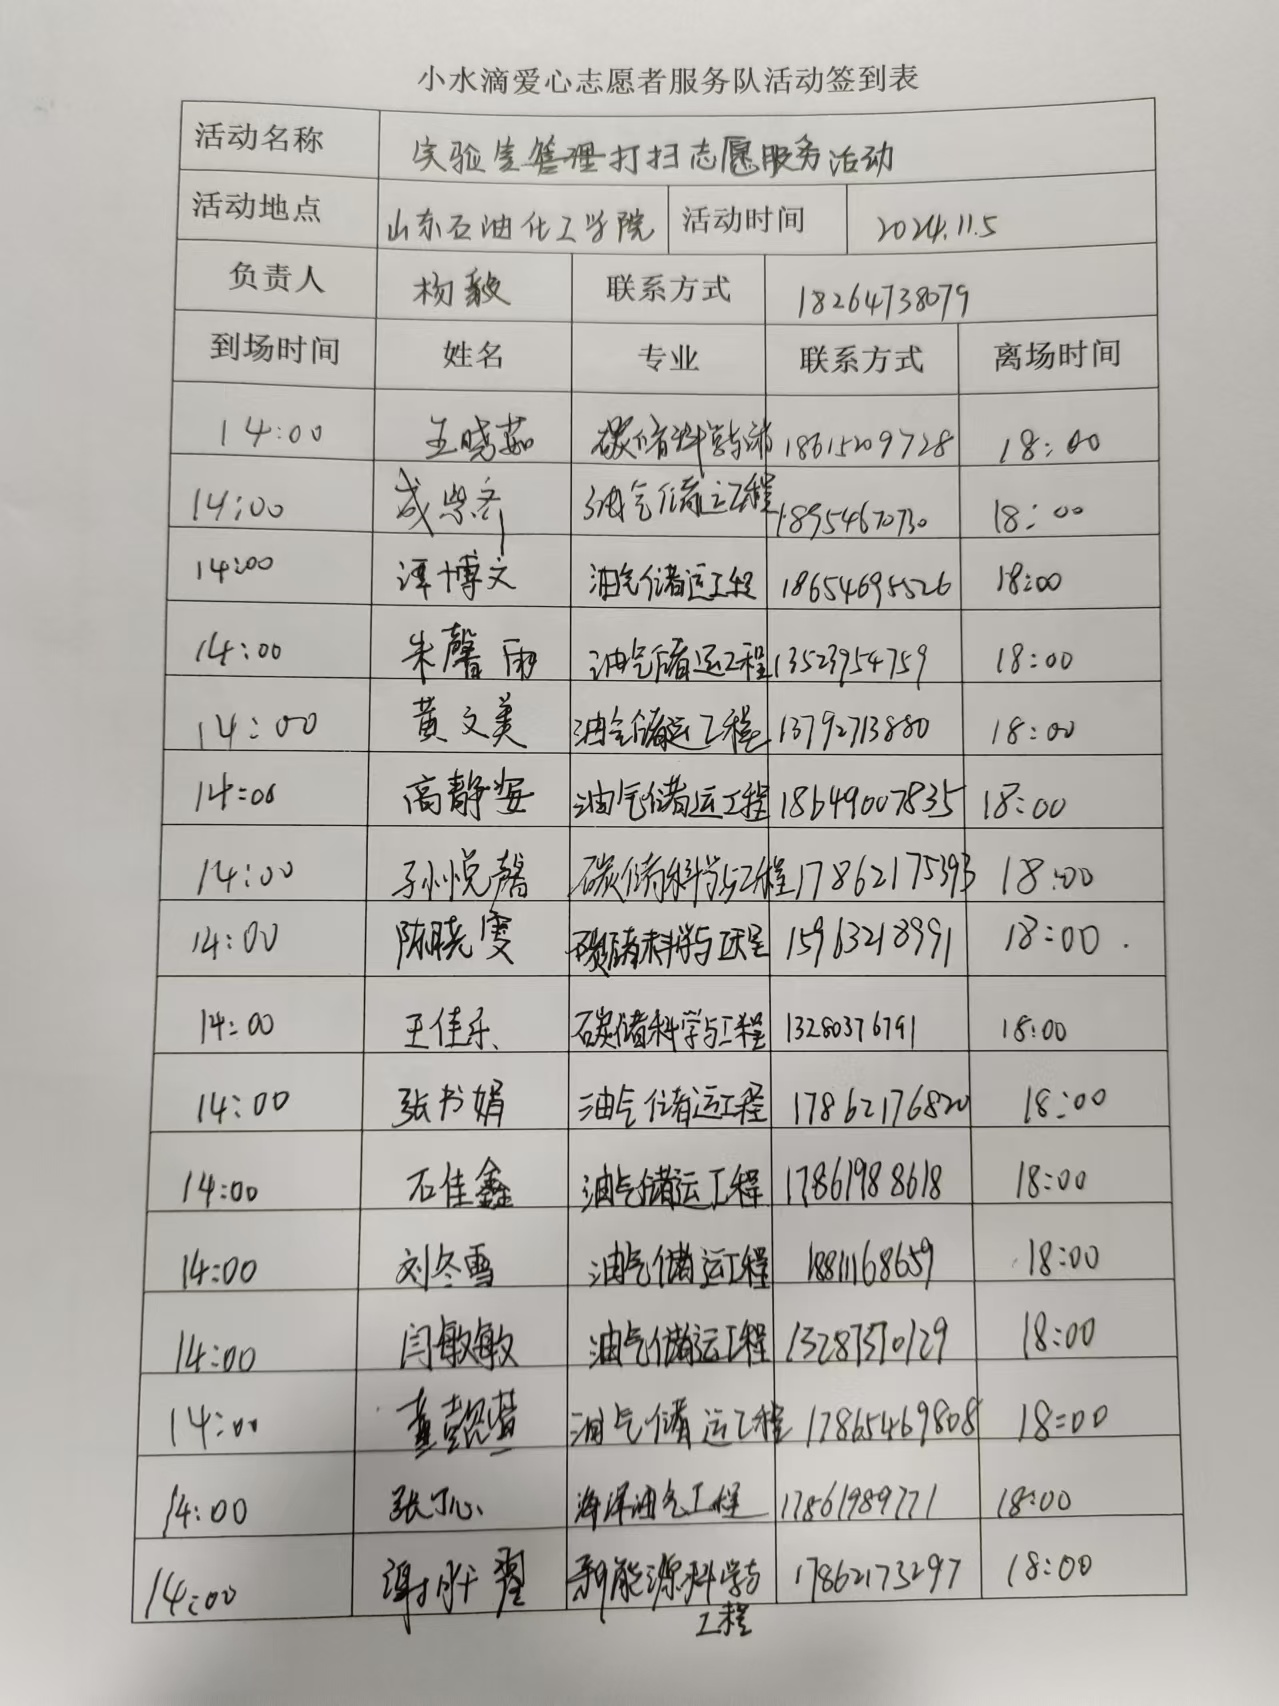 小水滴爱心志愿者服务队活动签到表
活动名称 实验室管理打扫志愿服务活动
活动地点 山东石油化工学院 活动时间 2024.11.5
负责人 杨毅 联系方式 18264738079
到场时间 姓名 专业 联系方式 离场时间
14:00 王晓茹 碳储科学与 18615209728 18:00
14:00 油气储运工程 18954670730 18:00
14:00 谭博文 油气储运工程 18654695526 18:00
14:00 朱馨雨 油气储运工程 13523954759 18:00
14:00 黄文美 油气储运工程 13792713880 18:00
14:00 高静安 油气储运工程 18649007835 18:00
14:00 孙悦馨 碳储科学与工程 17862175393 18:00
14:00 陈晓雯 碳储科学与工程 15963218991 18:00
14:00 王佳乐 碳储科学与工程 13280376791 18:00
14:00 张书娟 油气储运工程 17862176820 18:00
14:00 石佳鑫 油气储运工程 17861988618 18:00
14:00 刘冬雪 油气储运工程 18811168659 18:00
14:00 闫敏敏 油气储运工程 13287370129 18:00
14:00 油气储运工程 17865469808 18:00
14:00 张可心 海洋油气工程 17861989771 18:00
14:00 新能源科学与 17862173297 18:00
工程